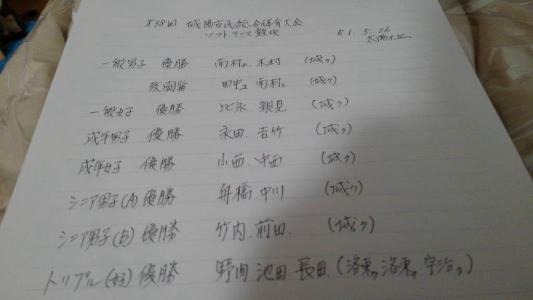 第38回 城陽市民総合体育大会
ソフトテニス競技 R1. 5. 26
一般男子 優勝 南村 木村 (城ク)
敢闘賞 田中 南村 (城ク)
一般女子 優勝 鶴見 (城ク)
成年男子 優勝 永田 吉竹 (城ク)
成年女子 優勝 小西 中西 (城ク)
シニア男子(A) 優勝 舟橋 中川 (城ク)
シニア男子(B) 優勝 竹内 前田 (城ク)
トリプル(女) 優勝 野内 池田 長田 (洛東ク 洛東ク 宇治ク)